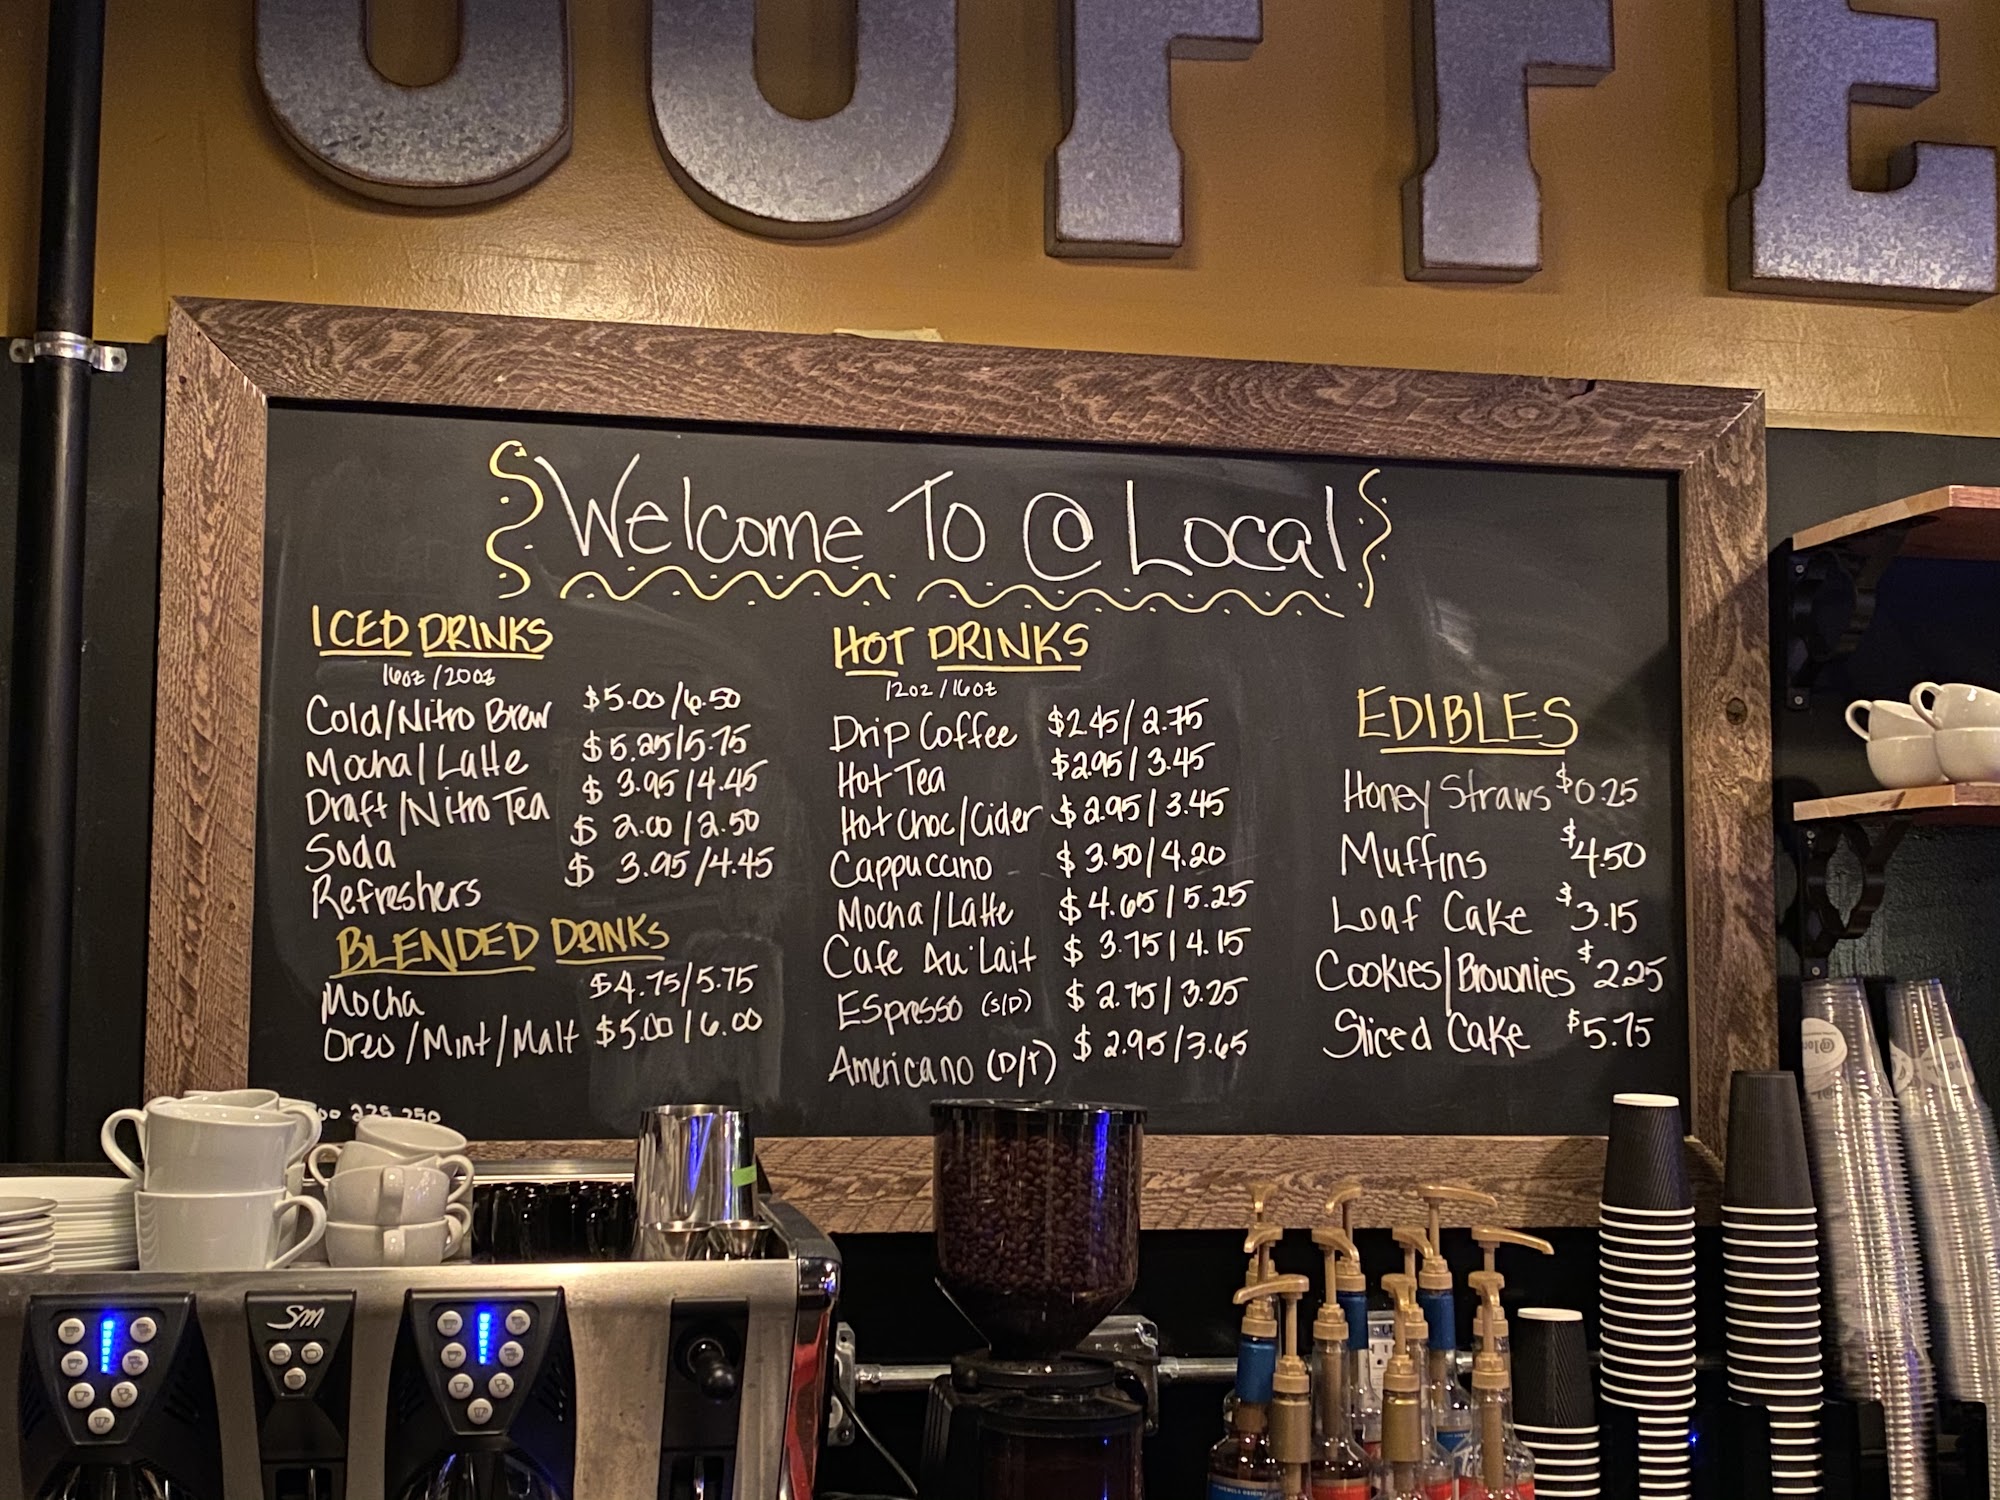 COFFE
Welcome To @ Local
ICED DRINKS
16oz / 20oz
Cold/Nitro Brew $5.00/6.50
Mocha/Latte $5.25/5.75
Draft/Nitro Tea $3.95/4.45
Soda $2.00/2.50
Refreshers $3.95/4.45
BLENDED DRINKS
Mocha $4.75/5.75
Oreo/Mint/Malt $5.00/6.00
HOT DRINKS
12oz / 16oz
Drip Coffee $2.45/2.75
Hot Tea $2.95/3.45
Hot Choc/Cider $2.95/3.45
Cappuccino $3.50/4.20
Mocha/Latte $4.65/5.25
Cafe Au Lait $3.75/4.15
Espresso (S/D) $2.75/3.25
Americano (D/T) $2.95/3.65
EDIBLES
Honey Straws $0.25
Muffins $4.50
Loaf Cake $3.15
Cookies/Brownies $2.25
Sliced Cake $5.75
SM